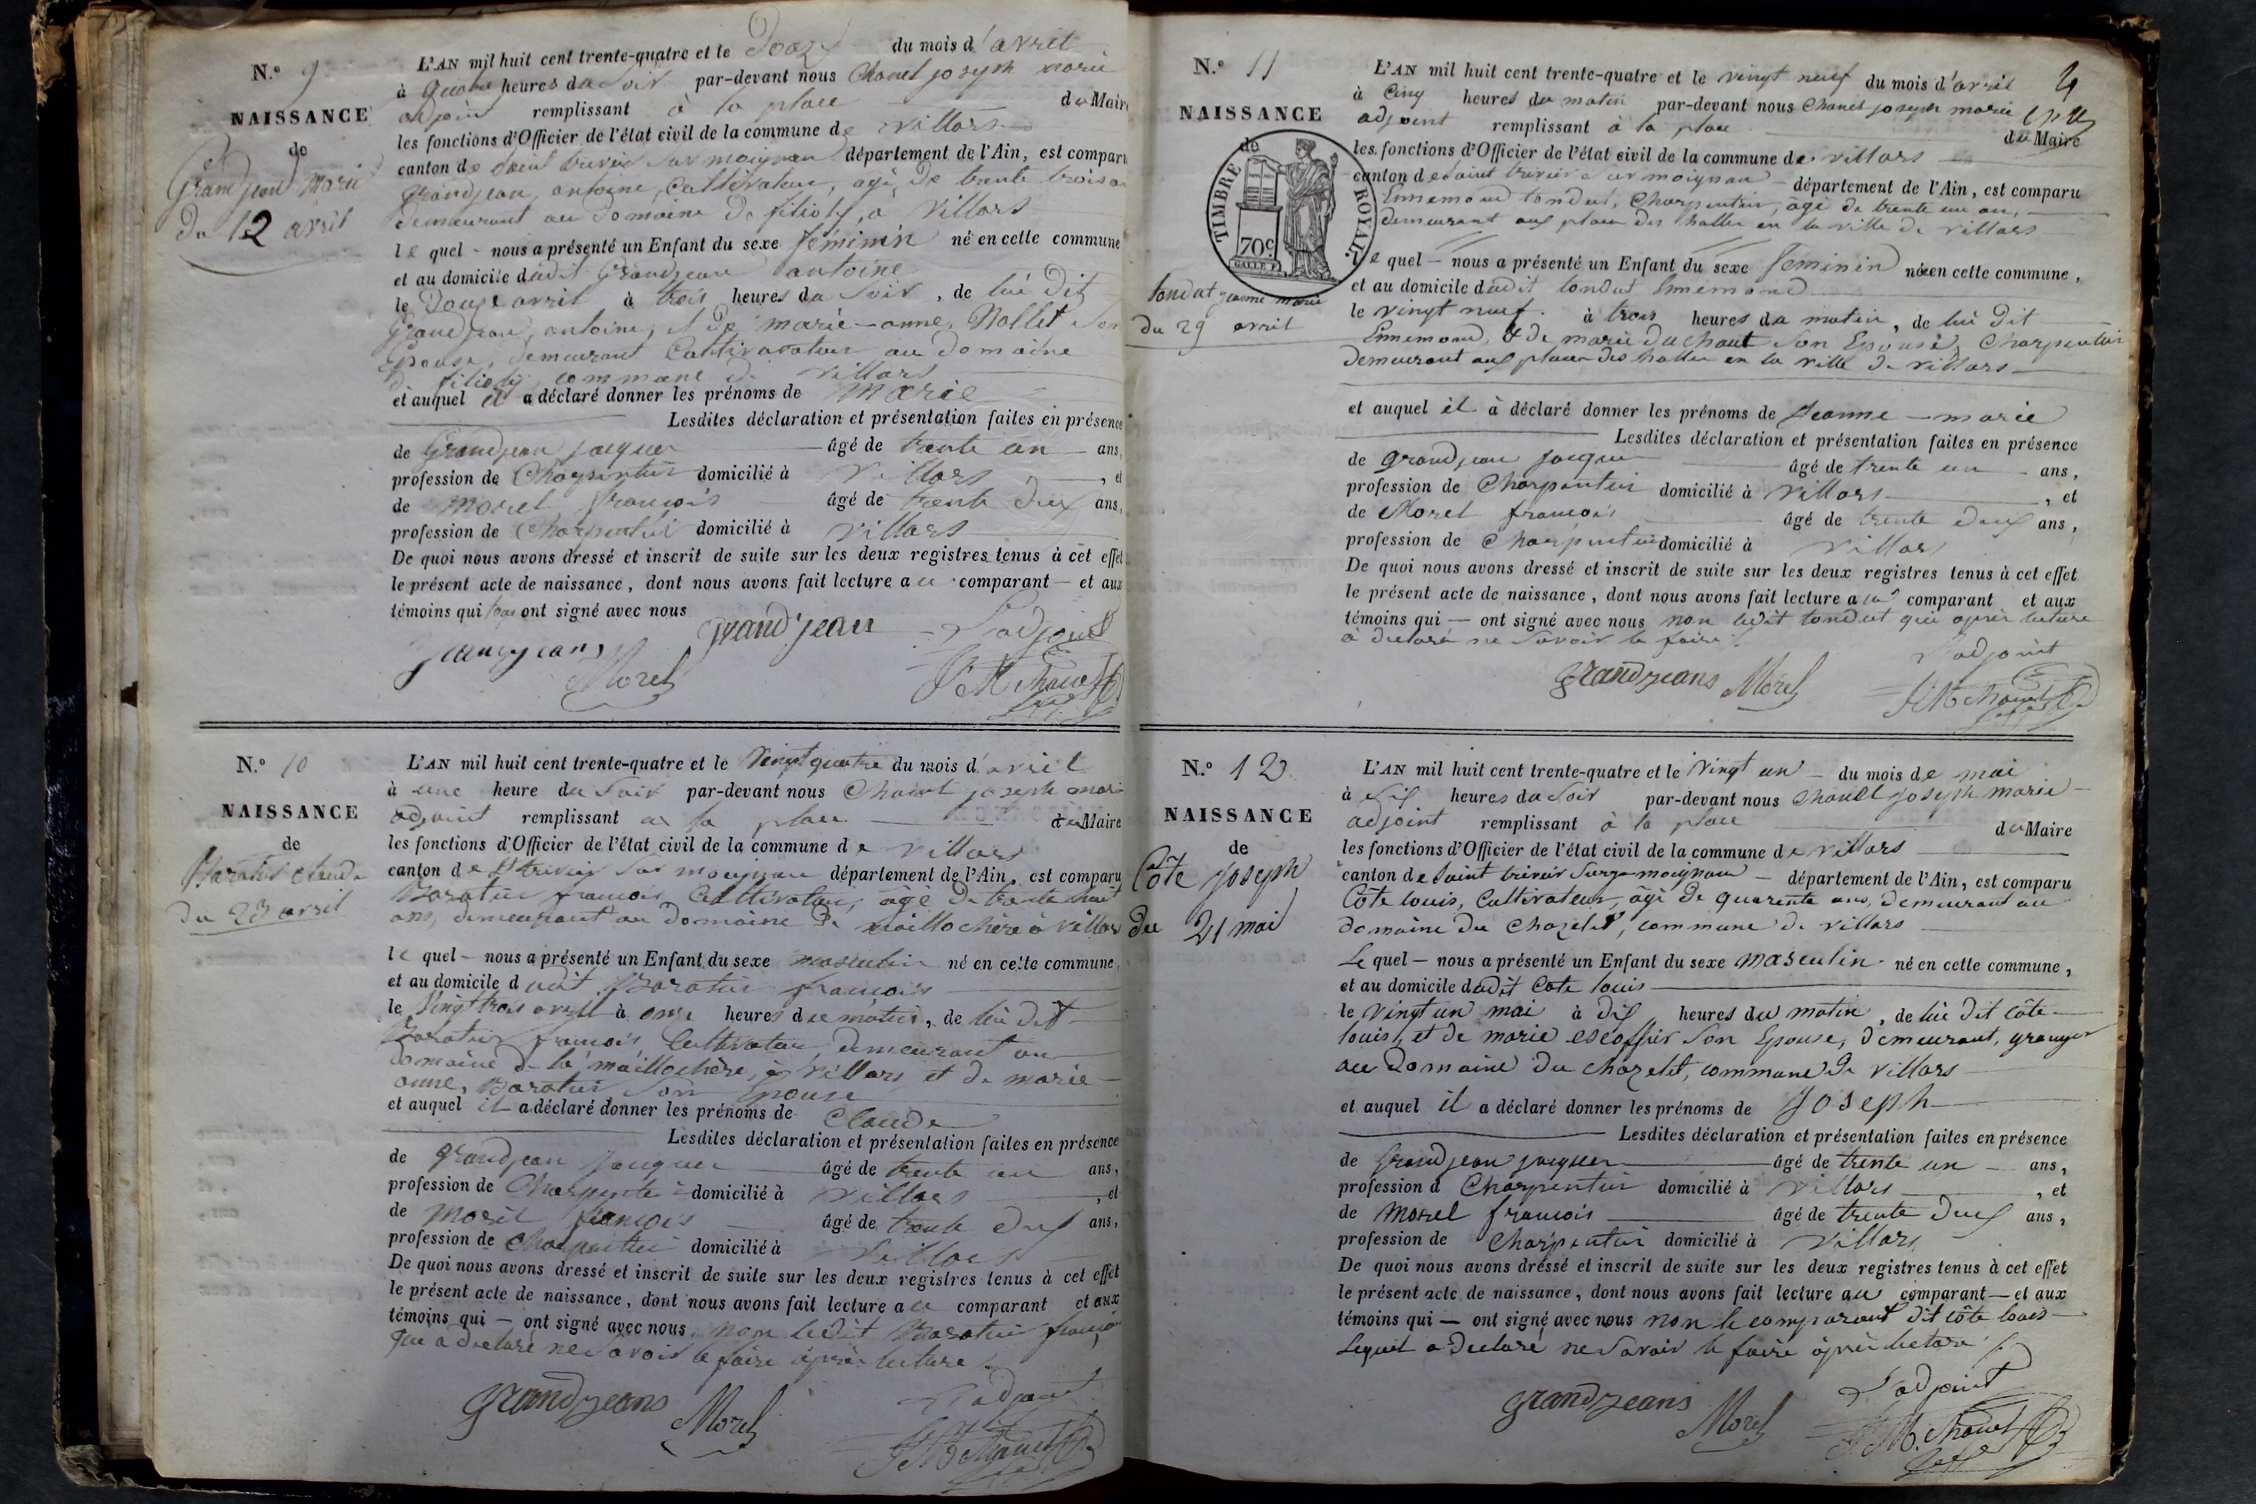 N.º 9
NAISSANCE
de
Grandjean Marie
Du 12 avril
L'AN mil huit cent trente-quatre et le Douze du mois d'avril
à quatre heures du Soir par-devant nous Chanel joseph marie
adjoint remplissant à la place du Maire
les fonctions d'Officier de l'état civil de la commune de villars
canton de Saint trivier sur moignan département de l'Ain, est comparu
grandjean antoine, Cultivateur, agé de trente trois ans
demeurant au Domaine de filioly, a Villars
le quel - nous a présenté un Enfant du sexe féminin né en cette commune
et au domicile dudit Grandjean antoine
le Douze avril à trois heures du Soir, de lui dit
Grandjean, antoine, et de marie-anne, Nallet son
Epouse, demeurant Cultivateur au Domaine
de filioly, commune de villars
et auquel il a déclaré donner les prénoms de Marie
Lesdites déclaration et présentation faites en présence
de Grandjean jacques âgé de trente un ans,
profession de Charpentier domicilié à Villars, et
de Morel françois âgé de trente deux ans,
profession de Charpentier domicilié à villars
De quoi nous avons dressé et inscrit de suite sur les deux registres tenus à cet effet
le présent acte de naissance, dont nous avons fait lecture au comparant — et aux
témoins qui tous ont signé avec nous
grandjean L'adjoint
grandjeans Morel J M Chanel
N.º 10
NAISSANCE
de
Baratier claude
du 23 avril
L'AN mil huit cent trente-quatre et le Vingt quatre du mois d'avril
à une heure du Soir par-devant nous Chanel joseph marie
adjoint remplissant à la place du Maire
les fonctions d'Officier de l'état civil de la commune de villars
canton de St trivier sur moignan département de l'Ain, est comparu
Baratier françois Cultivateur, âgé de trente huit
ans, demeurant au Domaine de maillochère à villars
le quel - nous a présenté un Enfant du sexe masculin né en cette commune
et au domicile dudit Baratier françois
le Vingt trois avril à onze heures du matin, de lui dit
Baratier françois Cultivateur, demeurant au
Domaine de la maillochère, à Villars et de marie
anne, Baratier son Epouse
et auquel il a déclaré donner les prénoms de Claude
Lesdites déclaration et présentation faites en présence
de grandjean Jacques âgé de trente un ans,
profession de Charpentier domicilié à villars, et
de Morel françois âgé de trente deux ans,
profession de Charpentier domicilié à Villars
De quoi nous avons dressé et inscrit de suite sur les deux registres tenus à cet effet
le présent acte de naissance, dont nous avons fait lecture au comparant et aux
témoins qui — ont signé avec nous non ledit Baratier françois
qui a declaré ne Savoir le faire après lecture
grandjeans Morel L'adjoint
J M Chanel
N.º 11
NAISSANCE
de
TIMBRE ROYAL
70c
GALLE F.
tondut jeanne marie
du 29 avril
4
L'AN mil huit cent trente-quatre et le vingt neuf du mois d'avril
à Cinq heures du matin par-devant nous Chanel joseph marie
adjoint remplissant à la place du Maire
les fonctions d'Officier de l'état civil de la commune de villars
canton de saint trivier sur moignan - département de l'Ain, est comparu
Ennemond tondut, Charpentier, âgé de trente un an,
demeurant aux place des halles en la ville de villars
le quel — nous a présenté un Enfant du sexe feminin née en cette commune,
et au domicile dudit tondut Ennemond
le vingt neuf à trois heures du matin, de lui dit
Ennemond, & de marie duchaut son Epouse, Charpentier
demeurant aux places des halles en la ville de villars
et auquel il à déclaré donner les prénoms de Jeanne - marie
Lesdites déclaration et présentation faites en présence
de grandjean jacques âgé de trente un ans,
profession de Charpentier domicilié à villars, et
de Morel françois âgé de trente deux ans,
profession de Charpentier domicilié à Villars
De quoi nous avons dressé et inscrit de suite sur les deux registres tenus à cet effet
le présent acte de naissance, dont nous avons fait lecture au comparant et aux
témoins qui — ont signé avec nous non ledit tondut qui après lecture
à declaré ne Savoir le faire
L'adjoint
grandjeans Morel J M Chanel
N.º 12
NAISSANCE
de
Côte joseph
du 21 mai
L'AN mil huit cent trente-quatre et le Vingt un - du mois de mai
à Six heures du Soir par-devant nous Chanel joseph marie
adjoint remplissant à la place du Maire
les fonctions d'Officier de l'état civil de la commune de villars
canton de Saint trivier Sur moignan - département de l'Ain, est comparu
Côte louis, Cultivateur, âgé de quarente ans, demeurant au
domaine du Chazelet, commune de villars
Le quel — nous a présenté un Enfant du sexe masculin né en cette commune,
et au domicile dudit Cote louis
le vingt un mai à dix heures du matin, de lui dit Côte
louis, et de marie escoffier son Epouse, demeurant, granger
au Domaine du Chazelet, commune de villars
et auquel il a déclaré donner les prénoms de Joseph
Lesdites déclaration et présentation faites en présence
de Grandjean jacques âgé de trente un ans,
profession d Charpentier domicilié à Villars, et
de Morel françois âgé de trente deux ans,
profession de Charpentier domicilié à Villars
De quoi nous avons dressé et inscrit de suite sur les deux registres tenus à cet effet
le présent acte de naissance, dont nous avons fait lecture au comparant — et aux
témoins qui — ont signé avec nous non le comparant dit côte louis
Lequel a declaré ne Savoir le faire après lecture
L'adjoint
grandjeans Morel J M Chanel